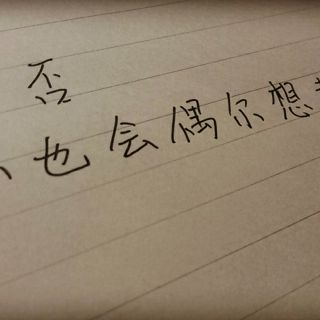 否
也会偶尔想